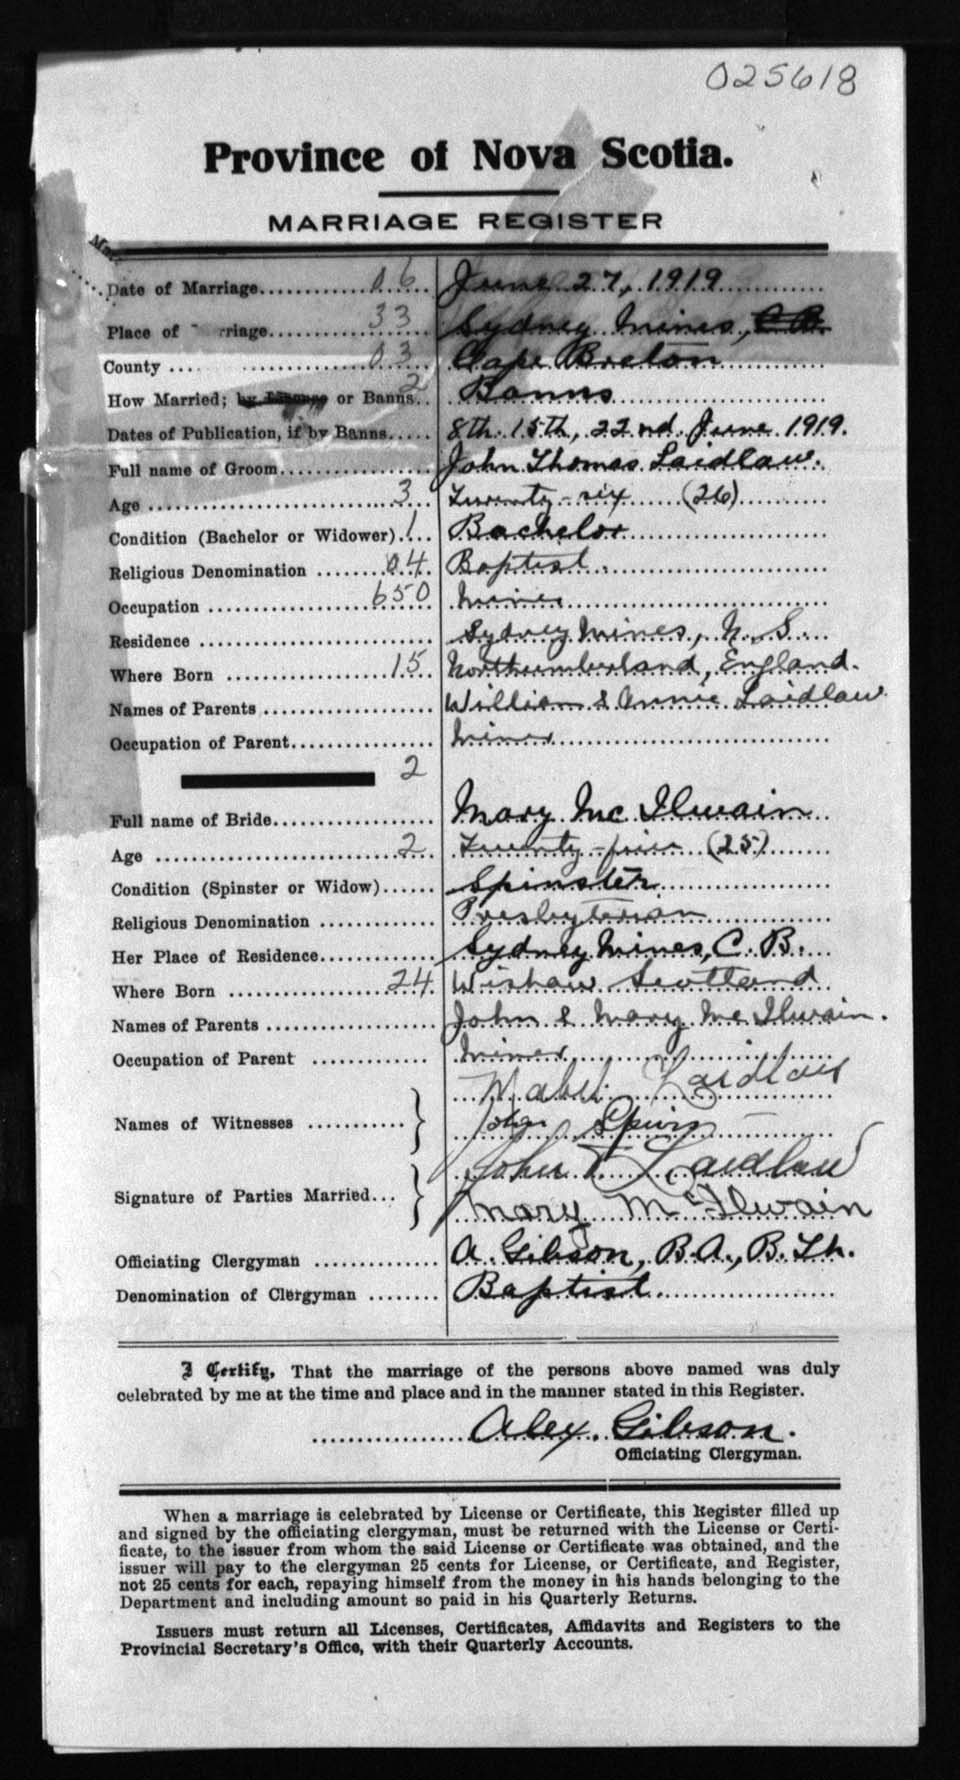 025618
Province of Nova Scotia.
MARRIAGE REGISTER
Date of Marriage 06 June 27, 1919
Place of rriage 33 Sydney Mines, C.B.
County 03 Cape Breton
How Married; by License or Banns 2 Banns
Dates of Publication, if by Banns 8th. 15th, 22nd. June 1919.
Full name of Groom John Thomas Laidlaw.
Age 3 Twenty-six (26)
Condition (Bachelor or Widower) 1 Bachelor
Religious Denomination 04 Baptist
Occupation 650 Miner
Residence Sydney Mines, N.S.
Where Born 15 Northumberland, England.
Names of Parents William & Annie Laidlaw
Occupation of Parent Miner
2
Full name of Bride Mary McIlwain
Age 2 Twenty-five (25)
Condition (Spinster or Widow) Spinster
Religious Denomination Presbyterian
Her Place of Residence Sydney Mines, C.B.
Where Born 24 Wishaw Scotland
Names of Parents John & Mary McIlwain.
Occupation of Parent Miner
Mabel Laidlaw
Names of Witnesses John Speirs
John T. Laidlaw
Signature of Parties Married Mary McIlwain
Officiating Clergyman A. Gibson, B.A., B.Th.
Denomination of Clergyman Baptist
I Certify, That the marriage of the persons above named was duly
celebrated by me at the time and place and in the manner stated in this Register.
Alex. Gibson.
Officiating Clergyman.
When a marriage is celebrated by License or Certificate, this Register filled up
and signed by the officiating clergyman, must be returned with the License or Certi-
ficate, to the issuer from whom the said License or Certificate was obtained, and the
issuer will pay to the clergyman 25 cents for License, or Certificate, and Register,
not 25 cents for each, repaying himself from the money in his hands belonging to the
Department and including amount so paid in his Quarterly Returns.
Issuers must return all Licenses, Certificates, Affidavits and Registers to the
Provincial Secretary's Office, with their Quarterly Accounts.